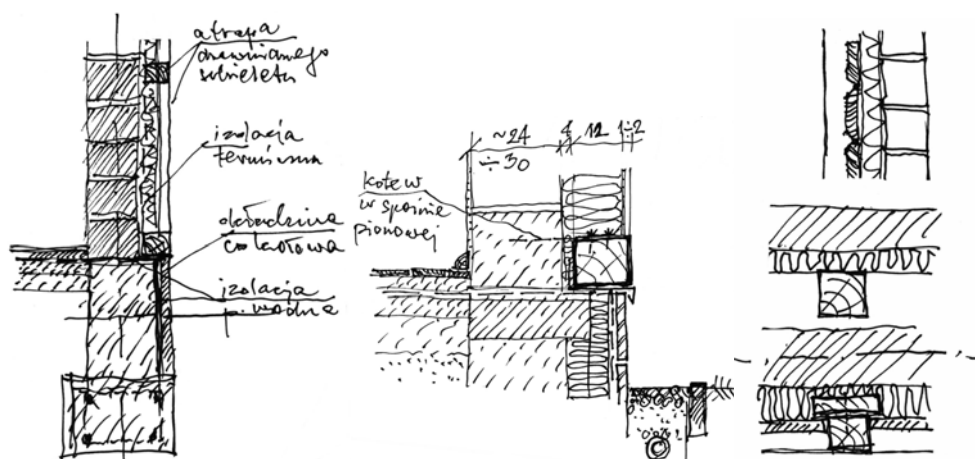 atrapa
drewnianego
szkieletu
izolacja
termiczna
okładzina
cokołowa
izolacja
p. wodna
~24
÷ 30
4
12
1÷2
kotew
w spoinie
pionowej